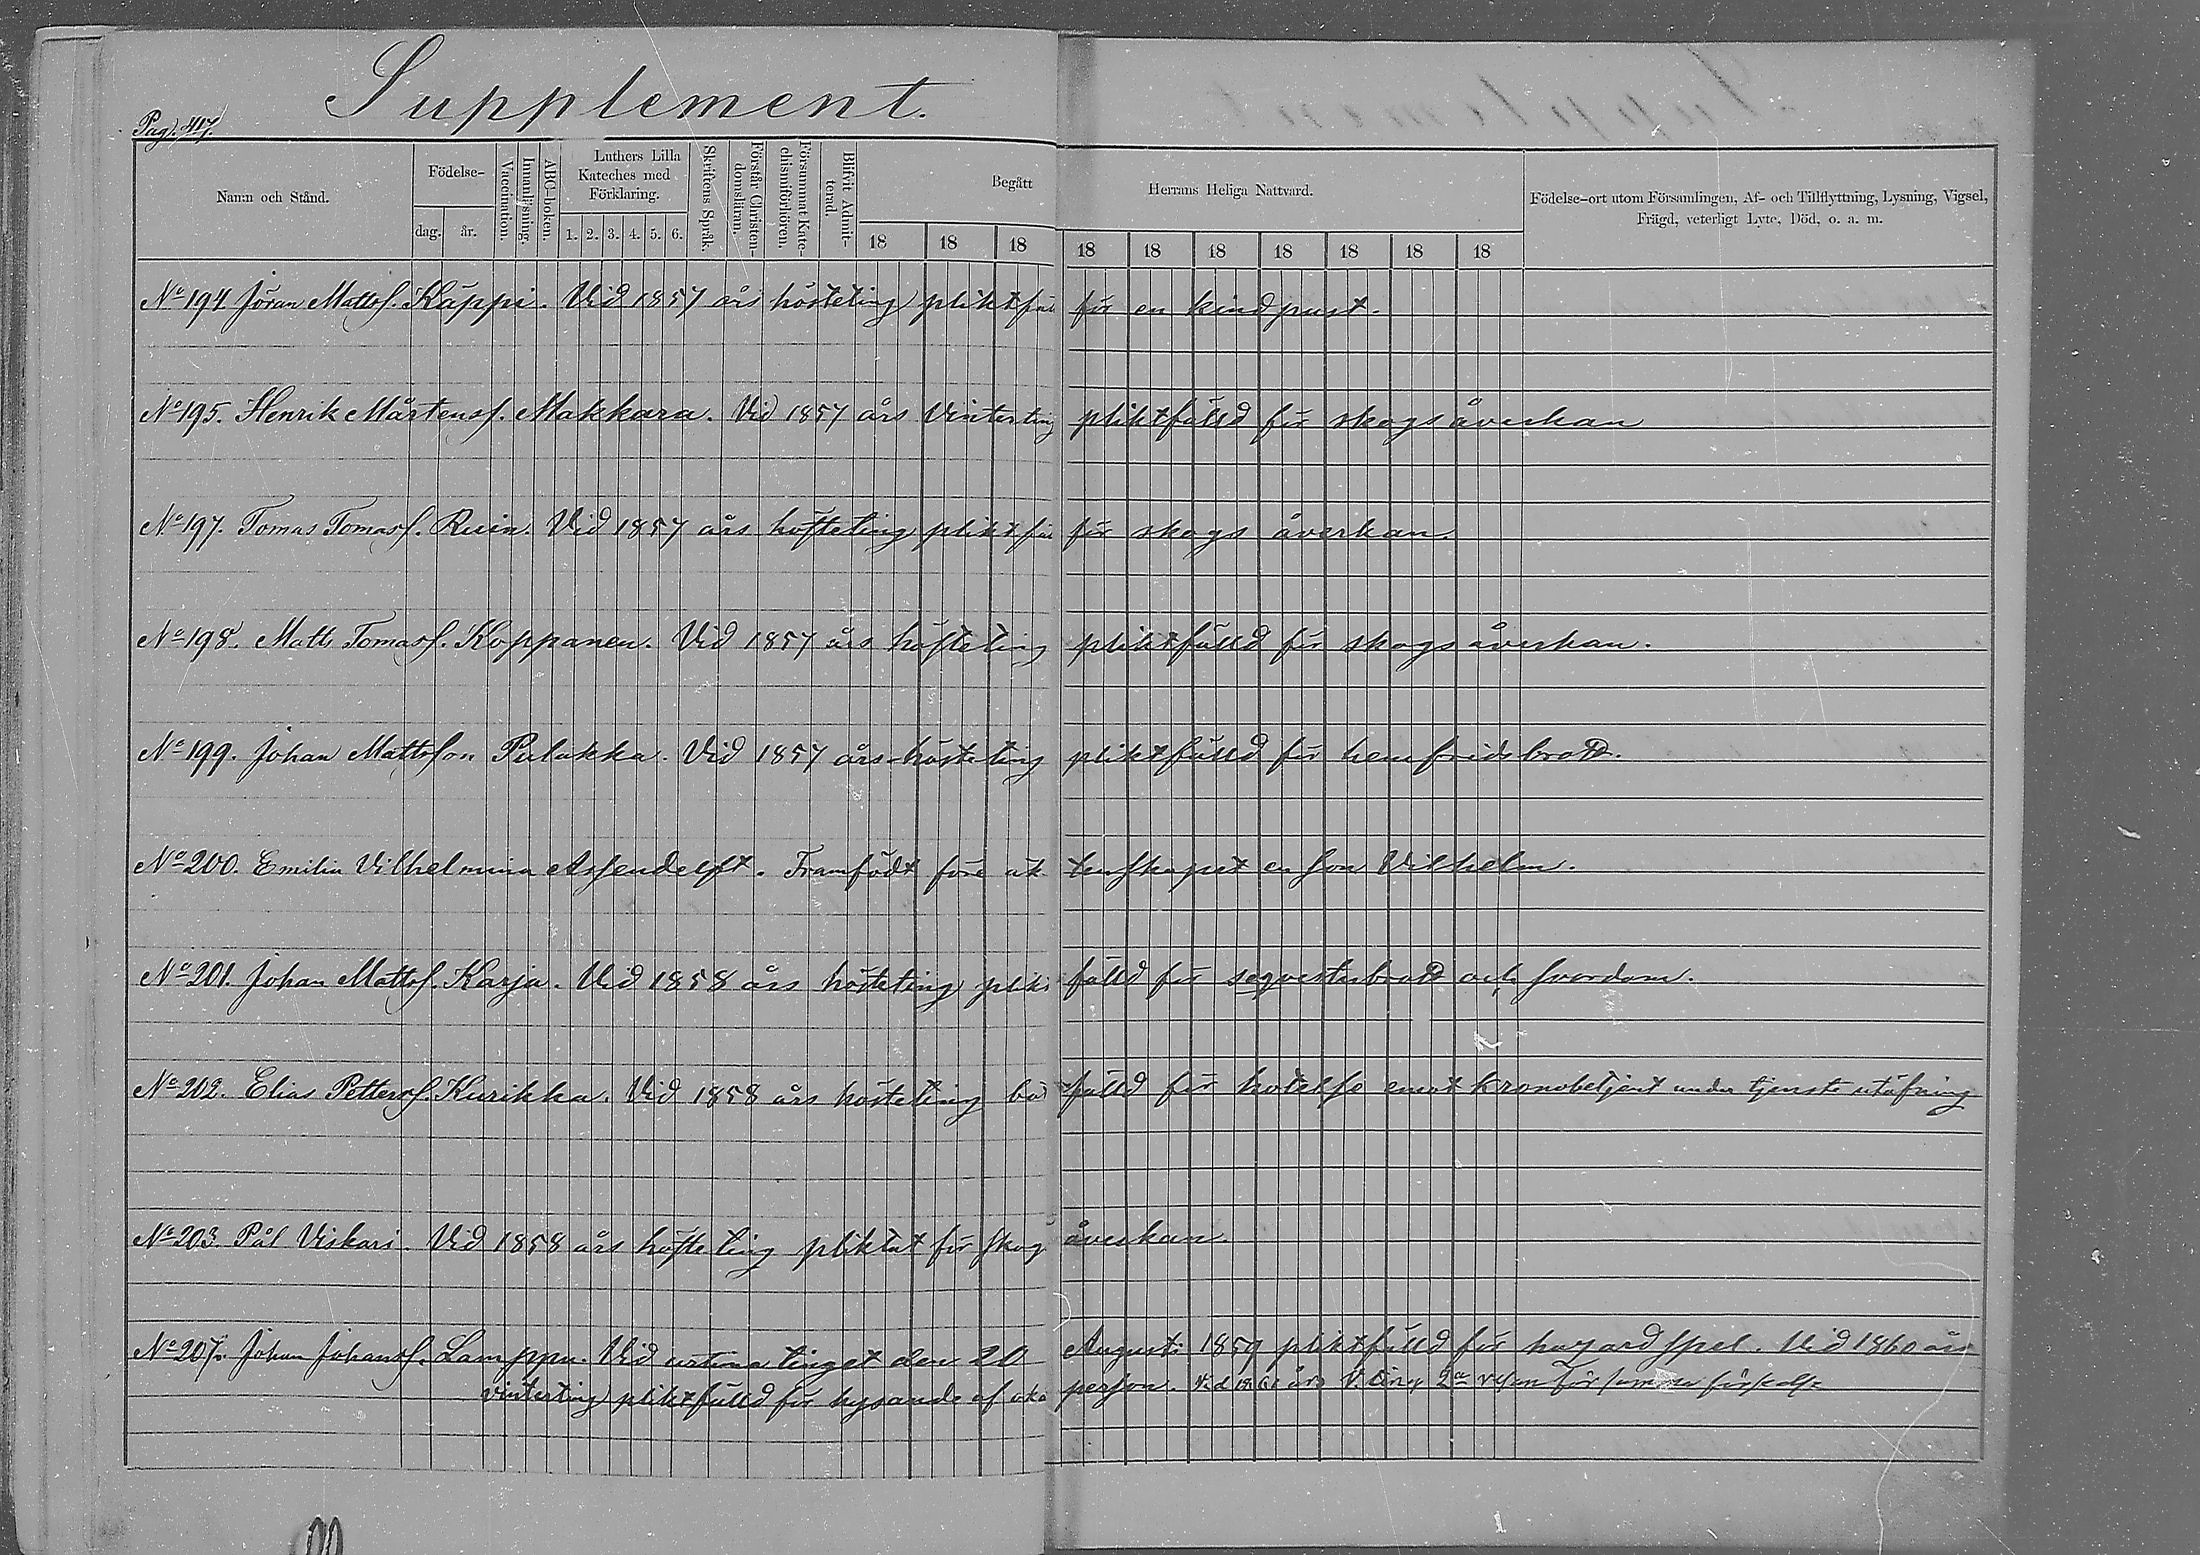 Supplement.
Pag. 417.
Namn och Stånd.
Födelse-
dag. år.
Vaccination.
Innanläsning.
ABC-boken.
Luthers Lilla Kateches med Förklaring.
1. 2. 3. 4. 5. 6.
Skriftens Språk.
Förstår Christendomsläran.
Försummat Katechismiförhören.
Blifvit Admitterad.
Begått Herrans Heliga Nattvard.
18 18 18 18 18 18 18 18 18 18
Födelse-ort utom Församlingen, Af- och Tillflyttning, Lysning, Vigsel,
Frägd, veterligt Lyte, Död, o. a. m.
No 194 Jöran Mattss. Käppi. Vid 1857 års hösteting pliktfäl för en kindpust.
No 195. Henrik Mårtenss. Makkara. Vid 1857 års Vinterting pliktfälld för skogsåverkan
No 197. Tomas Tomass. Ruin. Vid 1857 års hösteting pliktfäl för skogs åverkan.
No 198. Matts Tomass. Koppanen. Vid 1857 års hösteting pliktfälld för skogsåverkan.
No 199. Johan Mattsson Pulakka. Vid 1857 års hösteting pliktfälld för hemfridsbrott.
No 200. Emilia Vilhelmina Assendelft. Framfödt före äktenskapet en son Vilhelm.
No 201. Johan Mattss. Karja. Vid 1858 års hösteting plikt fälld för seqvesterbrott och svordom.
No 202. Elias Petterss. Kurikka. Vid 1858 års hösteting bötfälld för hotelse emot Kronobetjent under tjensteutöfning
No 203. Pål Viskari. Vid 1858 års hösteting pliktat för skog åverkan.
No 207. Johan Johanss. Lamppu. Vid urtima tinget den 20 Augusti 1859 pliktfälld för hazardspel. Vid 1860 års
vinterting pliktfälld för hysande af person. Vid 1861 års V. ting 2a resan för samma förseelse